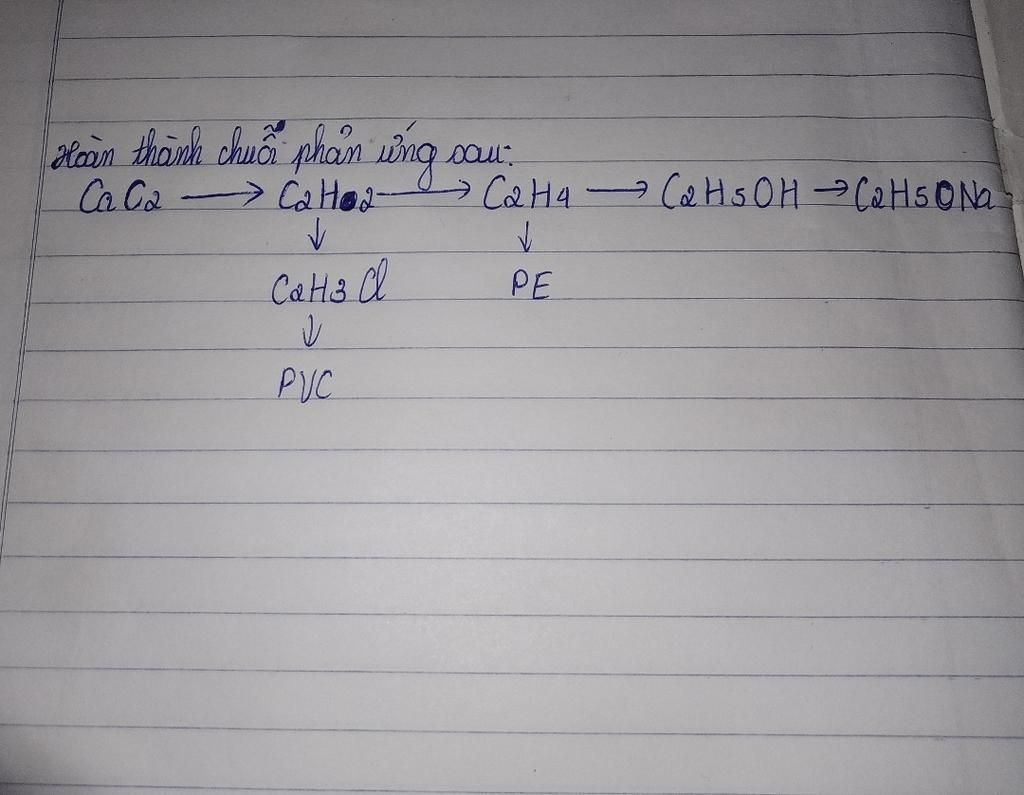 Hoàn thành chuỗi phản ứng sau:
CaC2 → C2H2 → C2H4 → C2H5OH → C2H5ONa
↓ ↓
C2H3Cl PE
↓
PVC